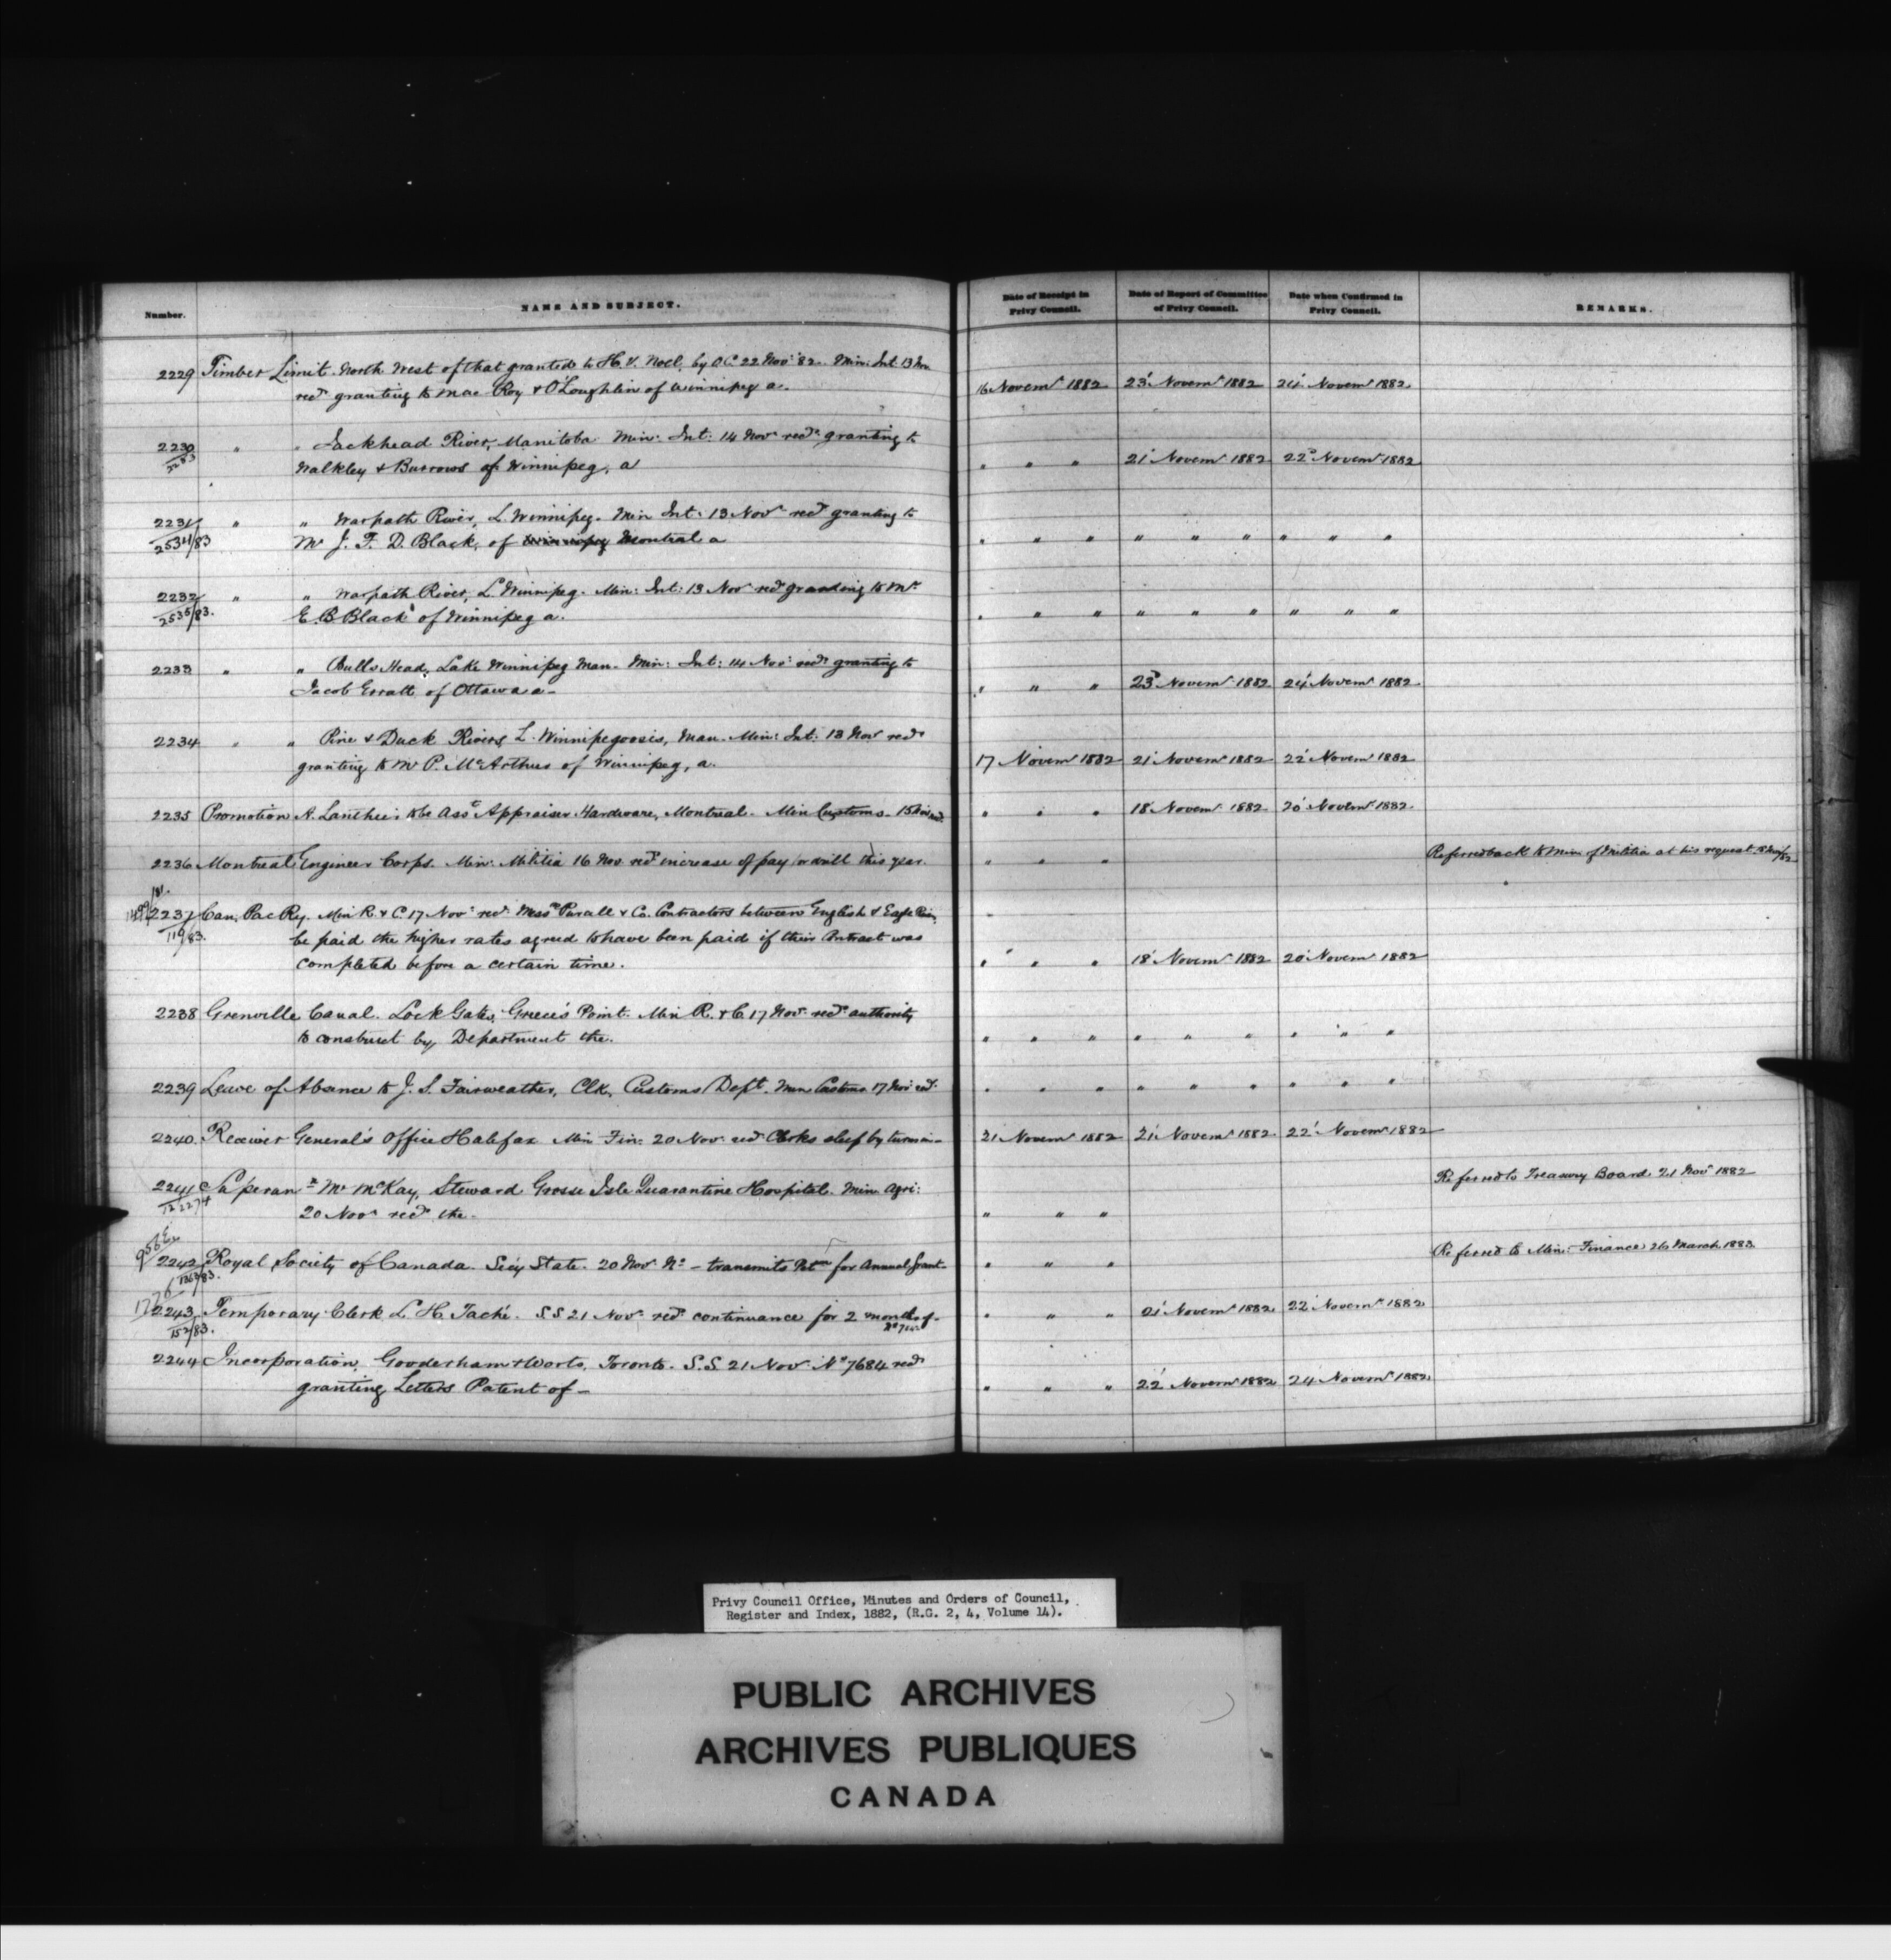 Number.
NAME AND SUBJECT.
Date of Receipt in Privy Council.
Date of Report of Committee of Privy Council.
Date when Confirmed in Privy Council.
REMARKS.
2229 Timber Limit. North West of that granted to H. V. Noel, by O.C. 22 Nov: '82. Min: Int. 13 Nov
recd granting to Mac Roy & O'Loughlin of Winnipeg a. 16 Novemr 1882 23 Novemr 1882 24 Novemr 1882
2230 " " Jackhead River, Manitoba. Min: Int: 14 Novr recd granting to
Walkley & Burrows of Winnipeg, a " " " 21 Novemr 1882 22 Novemr 1882
2231 " " Warpath River, L. Winnipeg. Min Int: 13 Novr recd granting to
2534/83 Mr J. T. D. Black, of Winnipeg Montreal a " " " " " " " " "
2232 " " Warpath River, L. Winnipeg. Min: Int: 13 Nov recd granting to Mr
2535/83. E. B. Black of Winnipeg a. " " " " " " " " "
2233 " " Bulls Head, Lake Winnipeg Man. Min: Int: 14 Nov: recd granting to
Jacob Erratt of Ottawa a - " " " 23 Novemr 1882 24 Novemr 1882
2234 " " Pine & Duck Rivers, L. Winnipegoosis, Man. Min: Int: 13 Nov recd
granting to Mr P. McArthur of Winnipeg, a. 17 Novemr 1882 21 Novemr 1882 22 Novemr 1882
2235 Promotion A. Lanthier to be Asst Appraiser Hardware, Montreal. Min Customs. 15 Nov recd " " " 18 Novemr 1882 20 Novemr 1882
2236 Montreal Engineer Corps. Min: Militia 16 Nov recd increase of pay for drill this year. " " " Referred back to Min of Militia at his request
2237 Can. Pac Ry. Min R. & C. 17 Nov: recd Messrs Purcell & Co. Contractors between English & Eagle River
119/83. be paid the higher rates agreed to have been paid if their Contract was
completed before a certain time. " " " 18 Novemr 1882 20 Novemr 1882
2238 Grenville Canal. Lock Gates, Greece's Point. Min R. & C. 17 Nov recd authority
to construct by Department the. " " " " " " " " "
2239 Leave of Absence to J. S. Fairweather, Clk, Customs Dept. Min Customs 17 Nov recd " " " " " " " " "
2240. Receiver General's Office Halifax Min Fin: 20 Nov recd Clerks sleep by turns in - 21 Novemr 1882 21 Novemr 1882 22 Novemr 1882
2241 Superann Mr McKay, Steward Grosse Isle Quarantine Hospital. Min. Agri: Referred to Treasury Board 21 Novr 1882
20 Novr recd the. " " "
2242 Royal Society of Canada. Secy State. 20 Nov. No - transmits Petn for Annual Grant - " " " Referred to Min: Finance 26 March 1883
2243 Temporary Clerk L. H. Taché. S S 21 Nov. recd continuance for 2 months of - " " " 21 Novemr 1882 22 Novemr 1882
152/83.
2244 Incorporation, Gooderham & Worts, Toronto. S.S. 21 Nov No 7684 recd
granting Letters Patent of - " " " 22 Novemr 1882 24 Novemr 1882
Privy Council Office, Minutes and Orders of Council,
Register and Index, 1882, (R.G. 2, 4, Volume 14).
PUBLIC ARCHIVES
ARCHIVES PUBLIQUES
CANADA